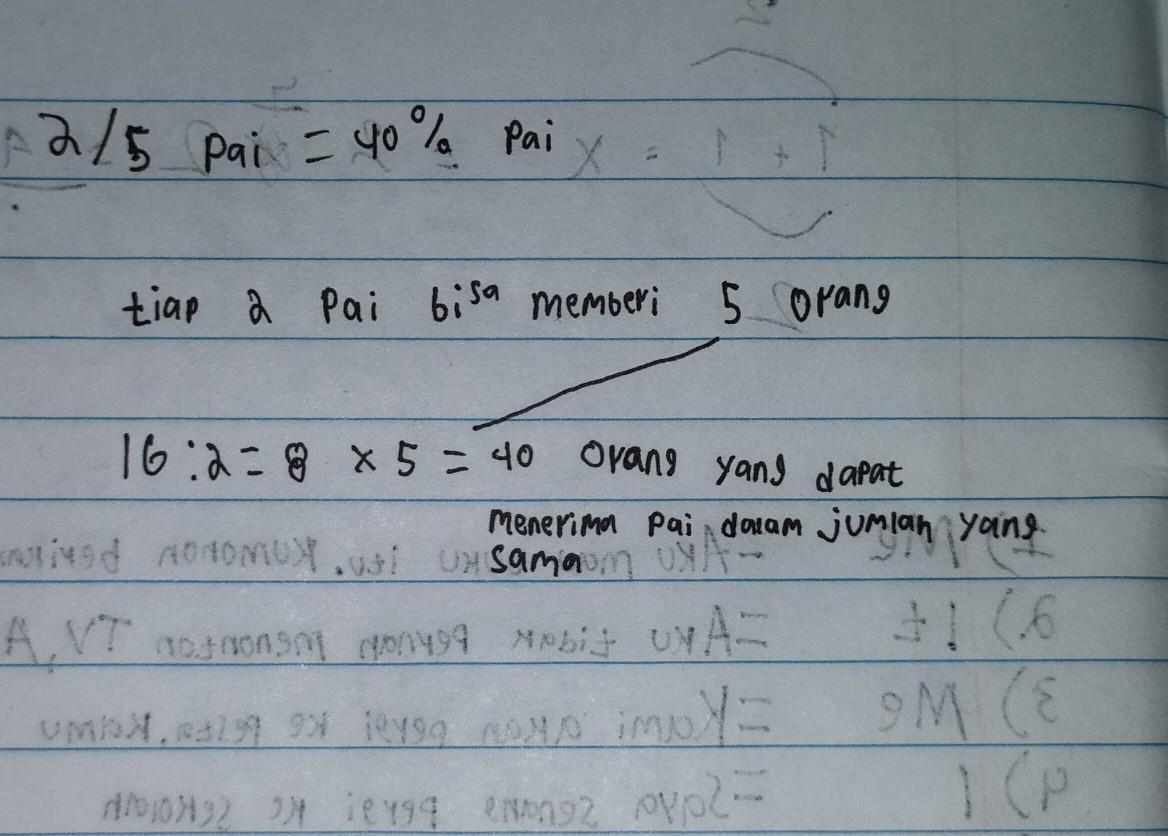 2/5 Pai = 40% Pai
tiap 2 Pai bisa memberi 5 orang
16 : 2 = 8 x 5 = 40 orang yang dapat
menerima Pai dalam jumlah yang
sama